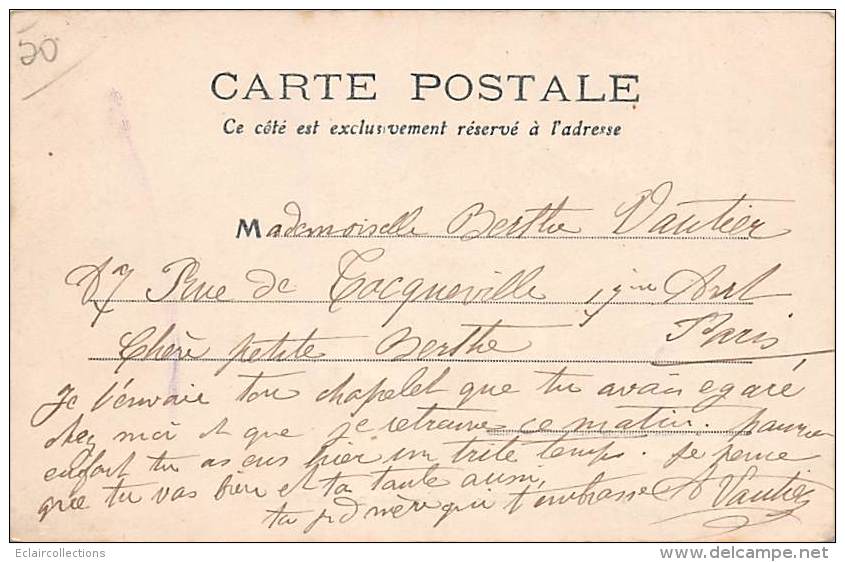 20
CARTE POSTALE
Ce côté est exclusivement réservé à l'adresse
Mademoiselle Berthe Vautier
47 Rue de Tocqueville, 17me Arrt
Chère petite Berthe Paris
Je t'envoie ton chapelet que tu avais egaré
chez moi et que je retrouve ce matin. pauvre
enfant tu as eus hier un triste temps. Je pense
que tu vas bien et ta tante aussi,
ta gd mère qui t'embrasse A Vautier
Eclaircollections
www.delcampe.net